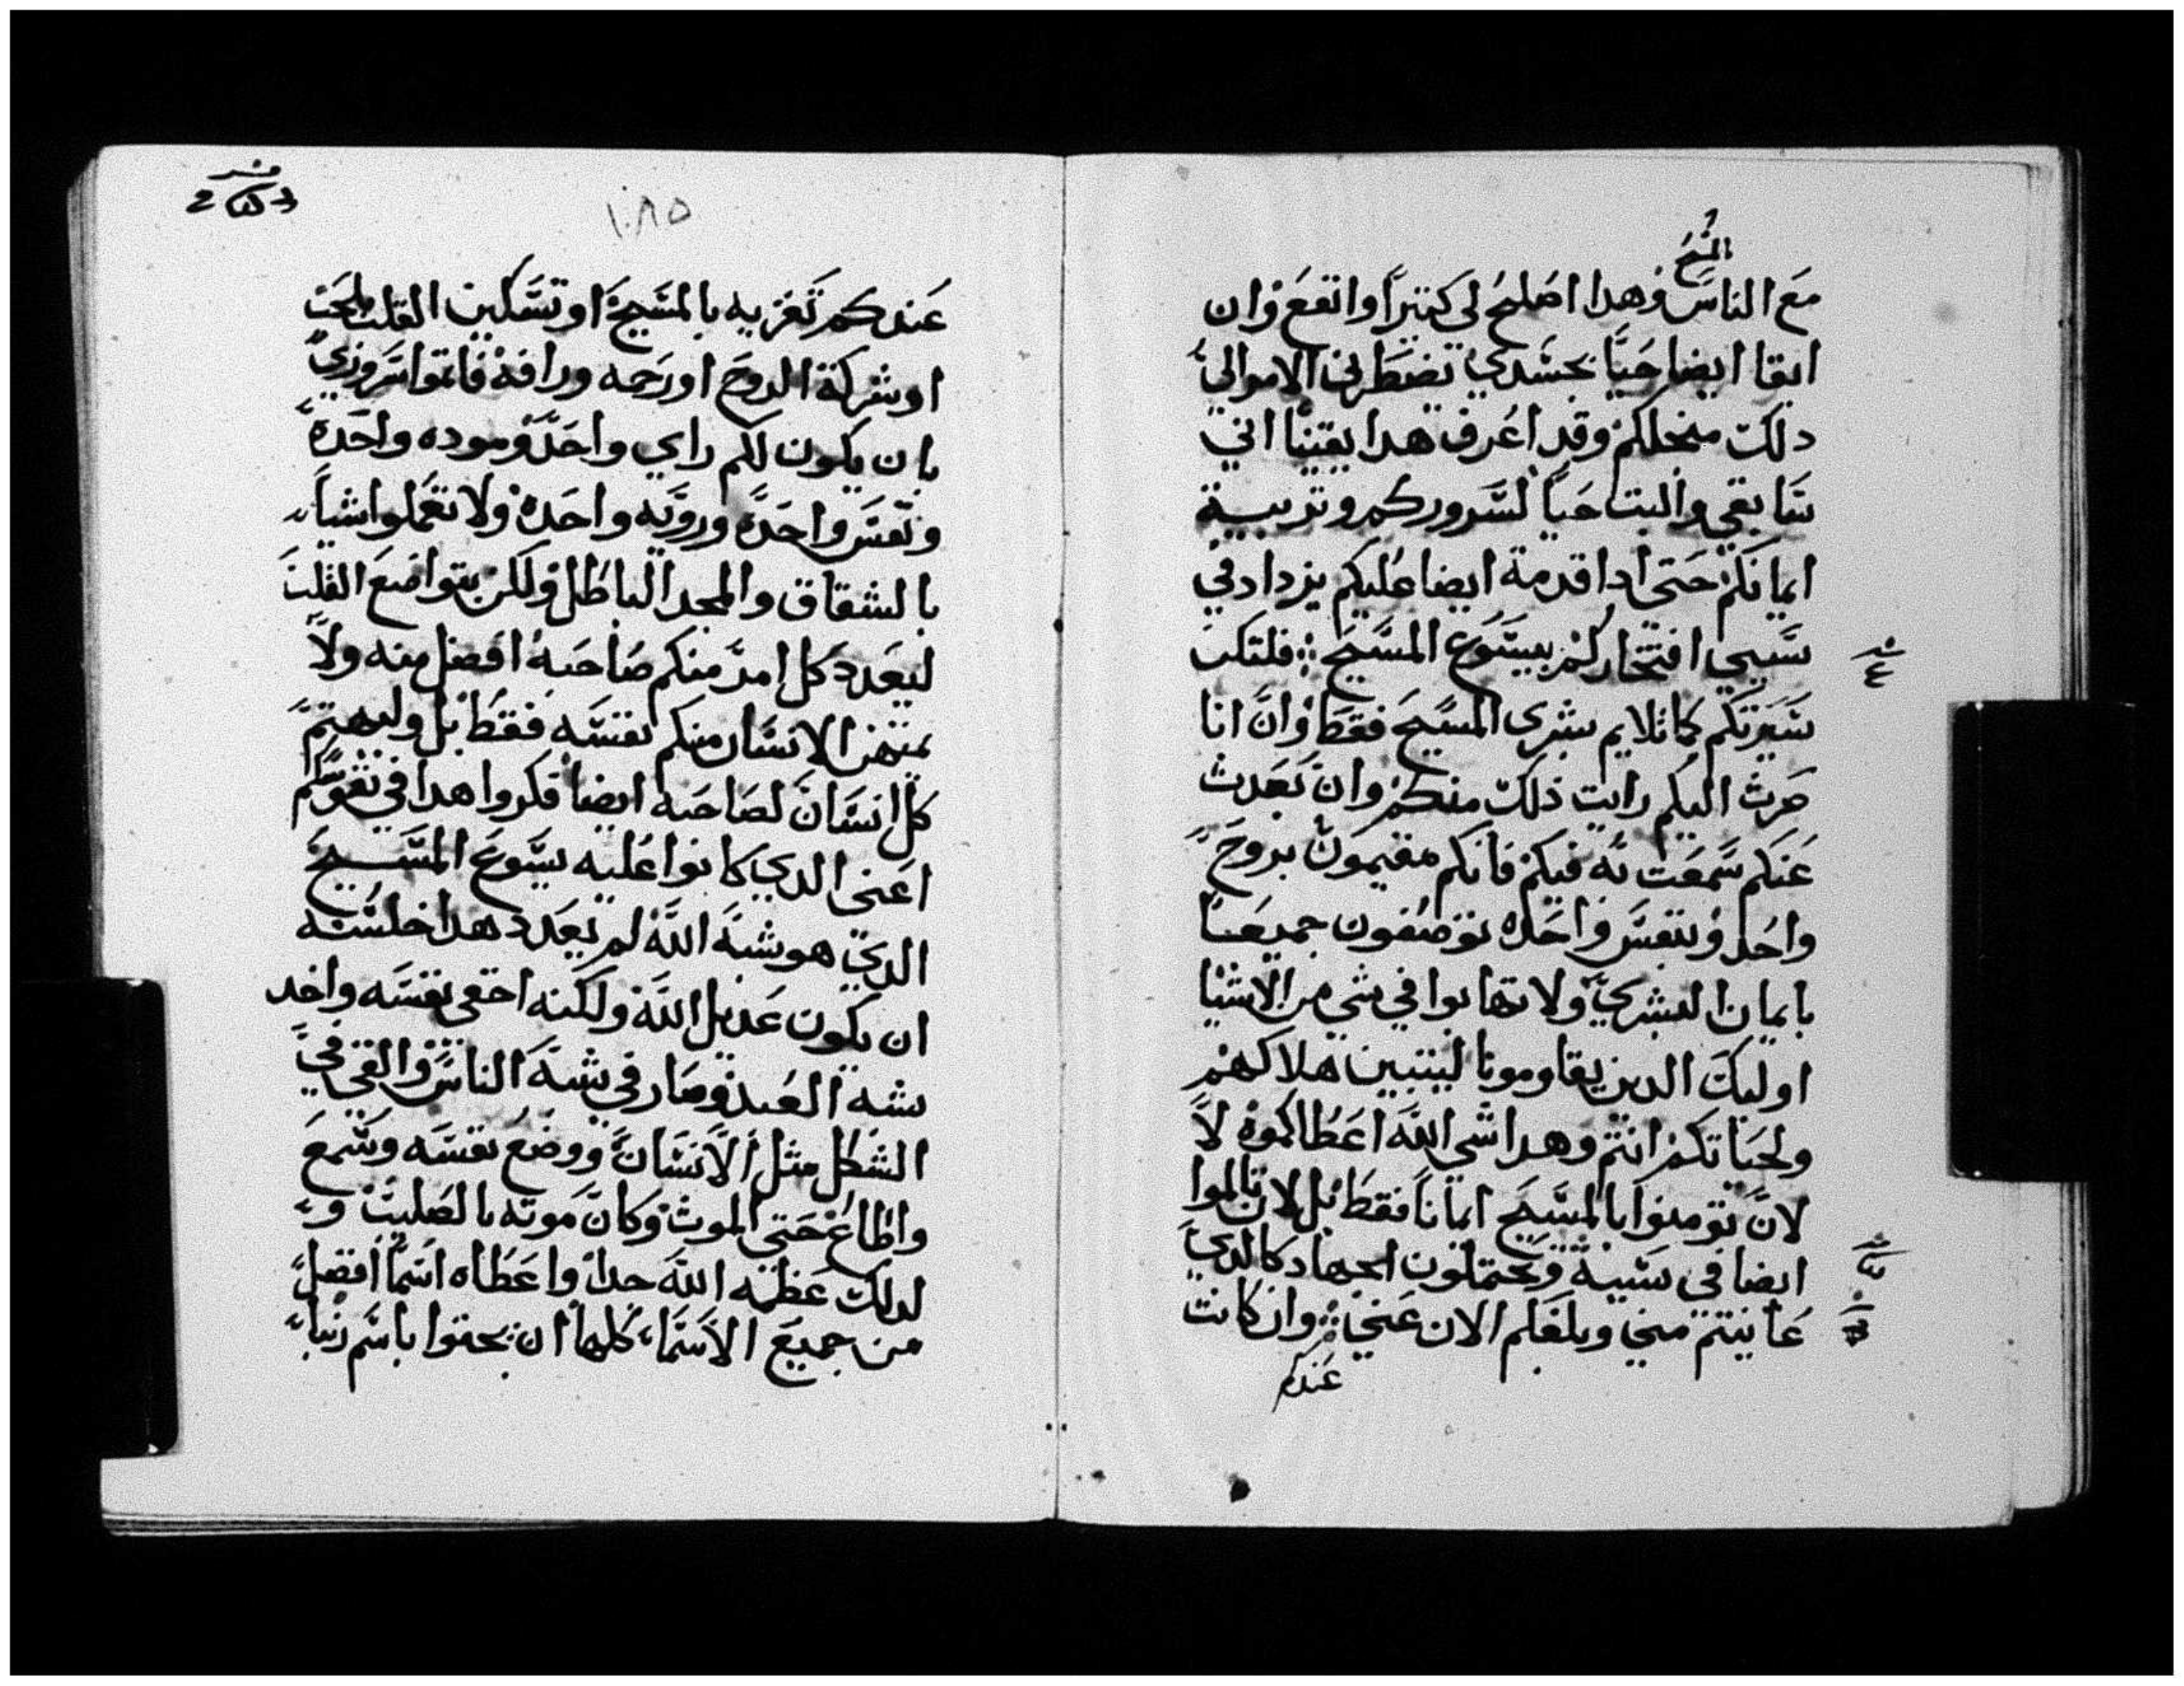 المسيح
مع الناس وهدا اصلح لي كتيراً وانفع وان
ابقا ايضا حياً بجسدي تضطرني الامور الي
دلك منجلكم وقد اعرف هدا يقيناً اني
سابقي والبت حياً لسروركم وتربية
ايمانكم حتي ادا قدمة ايضا عليكم يزداد في
سببي افتخاركم بيسوع المسيح ⁘ فلتكن
سيرتكم كما تلايم بشرى المسيح فقط وان انا
صرت اليكم رايت ذلك منكم وان بعدت
عنكم سمعت به فيكم فانكم مقيمون بروح
واحد وبنفس واحده توصفون جميعا
بايمان البشري ولا تهابوا في شي من الاشيا
اوليك الدين يقاومونا ليتبين هلاكهم
ولحياتكم انتم وهدا شي الله اعطاكموه لا
لان تومنوا بالمسيح ايماناً فقط بل لان تالموا
ايضا في سببه وتحتملون الجهاد كالدي
عاينتم مني وبلغكم الان عني ⁘ وان كانت
عندكم
١٠٨٥
عندكم تعزيه بالمسيح او تسكين القلب بالحب
او شركة الروح او رحمه ورافه فاتموا سروري
بان يكون لكم راي واحد وموده واحدة
ونفس واحدة ورويه واحده ولا تعملوا شياً
بالشقاق والمجد الباطل ولكن بتواضع القلب
ليعدد كل امر منكم صاحبه افضل منه ولا
الانسان منكم نفسه فقط بل وليهتم
كل انسان لصاحبه ايضاً فكروا هدا في نفوسكم
اعني الدي كانوا عليه يسوع المسيح
الدي هو شبه الله لم يعدد هدا خلسه
ان يكون عديل الله ولكنه اخفى نفسه واخد
شبه العبد وصار في شبه الناس والفي في
الشكل مثل الانسان ووضع نفسه وسمع
واطاع حتي الموت وكان موته بالصليب و
لدلك عظمه الله جداً واعطاه اسماً افضل
من جميع الاسماء كلها ان يجتوا باسم ربنا